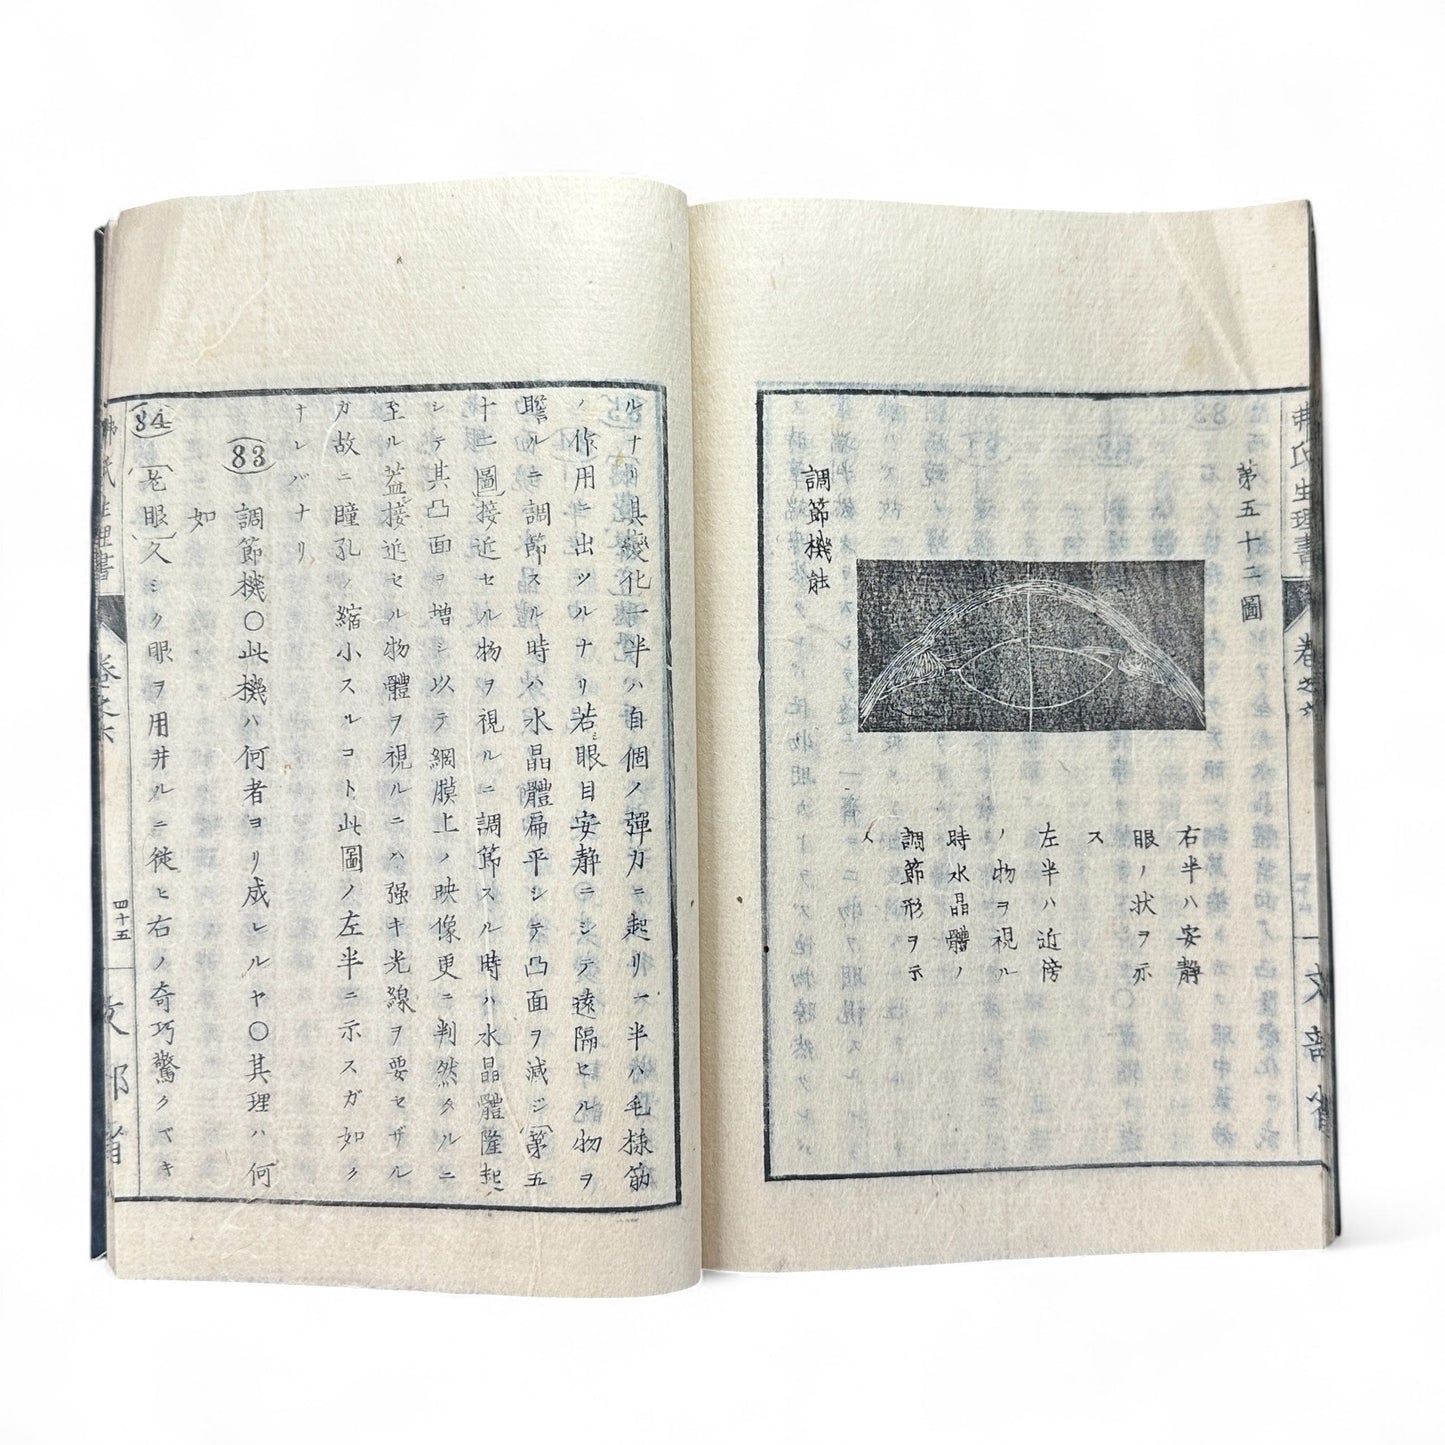 弗氏生理書
卷之六
文部省
第五十二圖
調節機能
右半ハ安靜
眼ノ状ヲ示
ス
左半ハ近傍
ノ物ヲ視ル
時水晶體ノ
調節形ヲ示
ス
ルナリ具變化一半ハ自個ノ彈力ニ起リ一半ハ毛様筋
ノ作用ニ出ツルナリ若シ眼目安靜ニシテ遠隔セル物ヲ
瞻ルニ調節スル時ハ水晶體扁平シテ凸面ヲ減ジ(第五
十二圖)接近セル物ヲ視ルニ調節スル時ハ水晶體隆起
シテ其凸面ヲ増シ以テ網膜上ノ映像更ニ判然タルニ
至ル蓋接近セル物體ヲ視ルニハ强キ光線ヲ要セザル
ガ故ニ瞳孔ノ縮小スルコト此圖ノ左半ニ示スガ如ク
ナレバナリ
83 調節機〇此機ハ何者ヨリ成レルヤ〇其理ハ何
如
84 (老眼)久シク眼ヲ用井ルニ從ヒ右ノ奇巧驚クベキ
弗氏生理書
卷之六
四十五
文部省